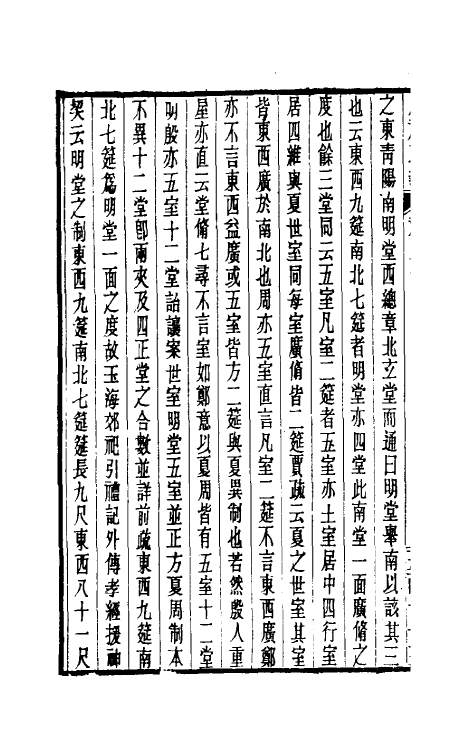 之東青陽南明堂西總章北玄堂而通曰明堂舉南以該其三
也云東西九筵南北七筵者明堂亦四堂此南堂一面廣脩之
度也餘三堂同云五室凡室二筵者五室亦土室居中四行室
居四維與夏世室同每室廣脩皆二筵賈疏云夏之世室其室
皆東西廣於南北也周亦五室直言凡室二筵不言東西廣鄭
亦不言東西益廣或五室皆方二筵與夏異制也若然殷人重
屋亦直云堂脩七尋不言室如鄭意以夏周皆有五室十二堂
明殷亦五室十二堂詒讓案世室明堂五室並正方夏周制本
不異十二堂卽兩夾及四正堂之合數並詳前疏東西九筵南
北七筵爲明堂一面之度故玉海郊祀引禮記外傳孝經援神
契云明堂之制東西九筵南北七筵筵長九尺東西八十一尺